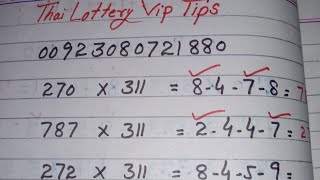 Thai Lottery Vip Tips
00923080721880
270 × 311 = 8-4-7-8=
787 × 311 = 2-4-4-7=
272 × 311 = 8-4-5-9=